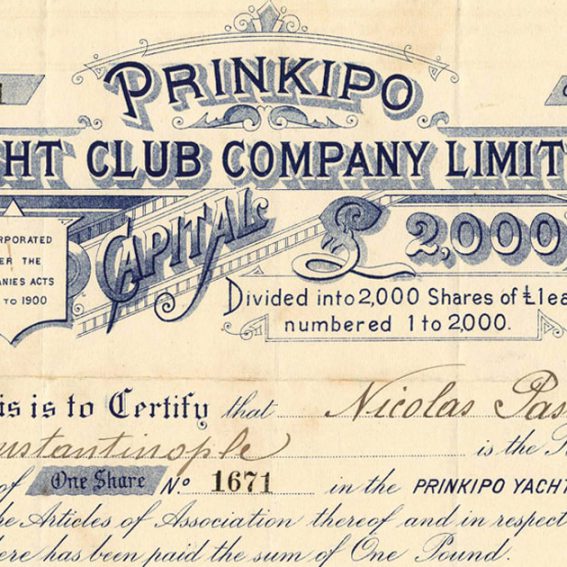 PRINKIPO
HT CLUB COMPANY LIMIT
CAPITAL £ 2,000
ORPORATED
ER THE
ANIES ACTS
TO 1900
Divided into 2,000 Shares of £1 ea
numbered 1 to 2,000.
is is to Certify that Nicolas Pas
nstantinople is the
of One Share No 1671 in the PRINKIPO YACHT
he Articles of Association thereof and in respect
ere has been paid the sum of One Pound.